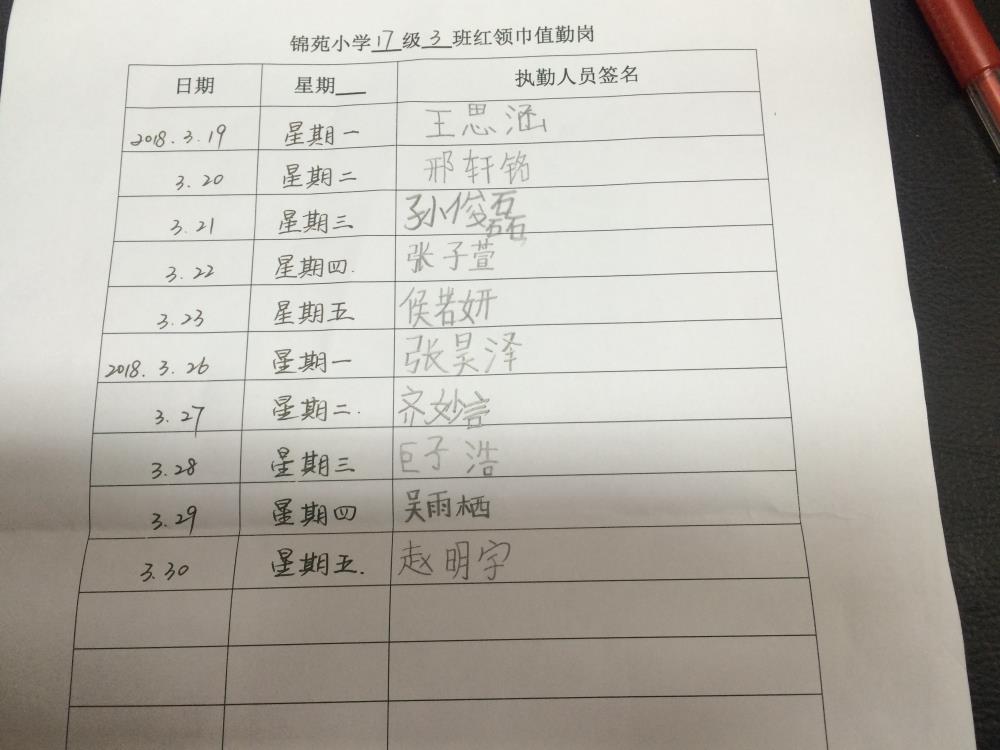 锦苑小学17级3班红领巾值勤岗
日期 星期 执勤人员签名
2018.3.19 星期一 王思涵
3.20 星期二 邢轩铭
3.21 星期三 孙俊磊
3.22 星期四. 张子萱
3.23 星期五 侯若妍
2018.3.26 星期一 张昊泽
3.27 星期二. 齐妙言
3.28 星期三 巨子浩
3.29 星期四 吴雨栖
3.30 星期五. 赵明宇